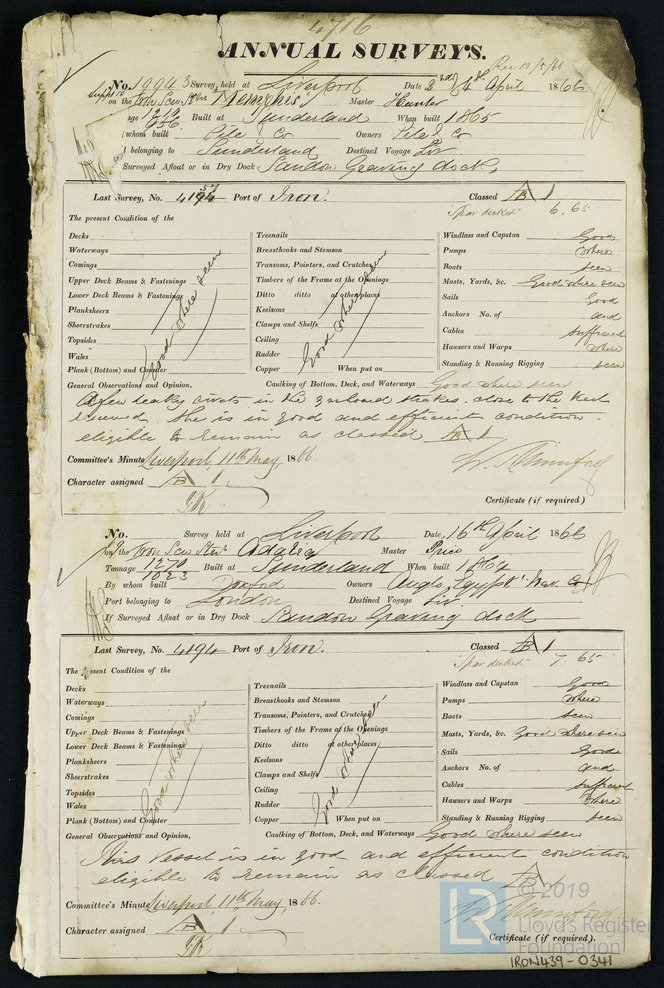 4716
ANNUAL SURVEYS.
Rec 12/5/66
No. 19943 Survey held at Liverpool Date 2nd & 4th April 1866
on the Iron Scw Str Memphis Master Hunter
age 1210 Built at Sunderland When built 1865
(whom built Pile & Co Owners Pile & Co
t belonging to Sunderland Destined Voyage Liv
Surveyed Afloat or in Dry Dock Sandon Graving dock,
Last Survey, No. 4194 Port of Iron. Classed A B 1
"Spar decked" 6, 65
The present Condition of the
Decks Treenails Windlass and Capstan Good
Waterways Breasthooks and Stemson Pumps where
Comings Transoms, Pointers, and Crutches Boats seen
Upper Deck Beams & Fastenings Timbers of the Frame at the Openings Masts, Yards, &c. Good where seen
Lower Deck Beams & Fastenings Ditto ditto at other places Sails Good
Planksheers Keelsons Anchors No. of and
Sheerstrakes Clamps and Shelfs Cables sufficient
Topsides Ceiling Hawsers and Warps where
Wales Rudder Standing & Running Rigging seen
Plank (Bottom) and Counter Copper When put on
Good where seen Good where seen
General Observations and Opinion, Caulking of Bottom, Deck, and Waterways Good where seen
A few leaky rivets in the garboard strakes close to the keel
renewed. She is in good and efficient condition
eligible to remain as classed A B 1
Committee's Minute Liverpool 11th May, 1866.
Character assigned A B 1
Certificate (if required)
No. Survey held at Liverpool Date, 16th April 1866
on the Iron Scw Str Adalia Master Price
Tonnage 1270 Built at Sunderland When built 1864
1023
By whom built Doxford Owners Anglo Egypt Nav Co
Port belonging to London Destined Voyage Liv
If Surveyed Afloat or in Dry Dock Sandon Graving dock
Last Survey, No. 4194 Port of Iron. Classed A B 1
"Spar decked" 7 65
The present Condition of the
Decks Treenails Windlass and Capstan Good
Waterways Breasthooks and Stemson Pumps where
Comings Transoms, Pointers, and Crutches Boats seen
Upper Deck Beams & Fastenings Timbers of the Frame at the Openings Masts, Yards, &c. Good where seen
Lower Deck Beams & Fastenings Ditto ditto at other places Sails Good
Planksheers Keelsons Anchors No. of and
Sheerstrakes Clamps and Shelfs Cables sufficient
Topsides Ceiling Hawsers and Warps where
Wales Rudder Standing & Running Rigging seen
Plank (Bottom) and Counter Copper When put on
Good where seen Good where seen
General Observations and Opinion, Caulking of Bottom, Deck, and Waterways Good where seen
This Vessel is in good and efficient condition
eligible to remain as classed A B 1
Committee's Minute Liverpool, 11th May, 1866.
Character assigned A B 1
Certificate (if required).
LR © 2019
Lloyd's Register
Foundation
IRON439-0341